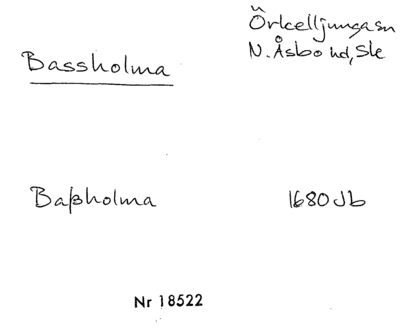 Bassholma
Örkelljunga sn
N. Åsbo hd, Sk
Baßholma
1680 Jb
Nr 18522